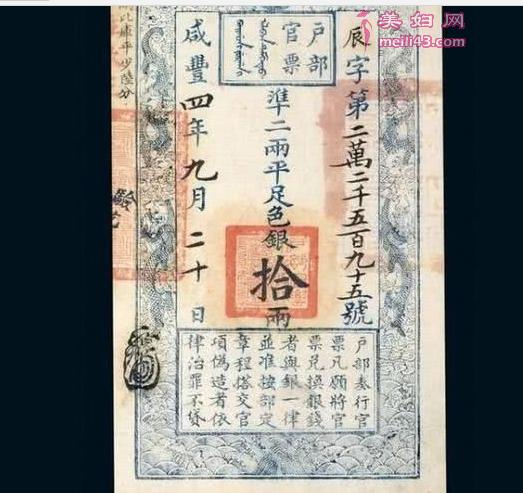 美妇网
meili43.com
戶部
官票
辰字第二萬二千五百九十五號
準二兩平足色銀拾兩
咸豐四年九月二十日
戶部奏行官
票凡願將官
票兌換銀錢
者與銀一律
並准按部定
章程搭交官
項偽造者依
律治罪不貸
比庫平少陸分